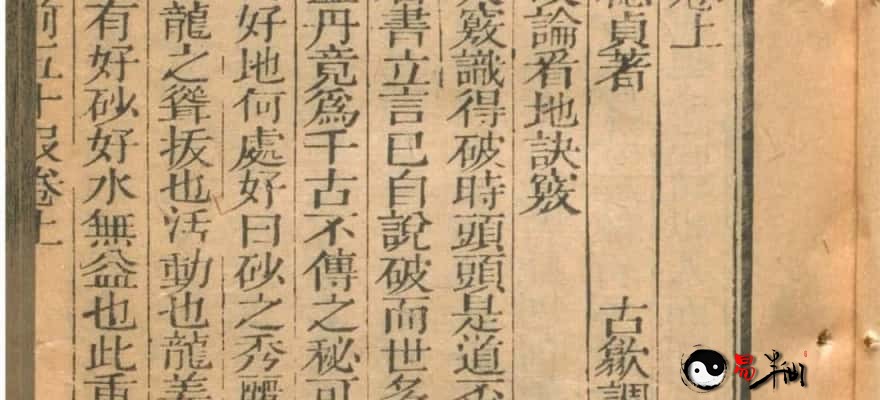 卷上
德貞著　古歙
論看地訣竅
竅識得破時頭頭是道
書立言已自說破而世多
丹竟爲千古不傳之秘可
好地何處好曰砂之秀麗
龍之聳拔也活動也龍美
有好砂好水無益也此重
五十段卷上
易半仙